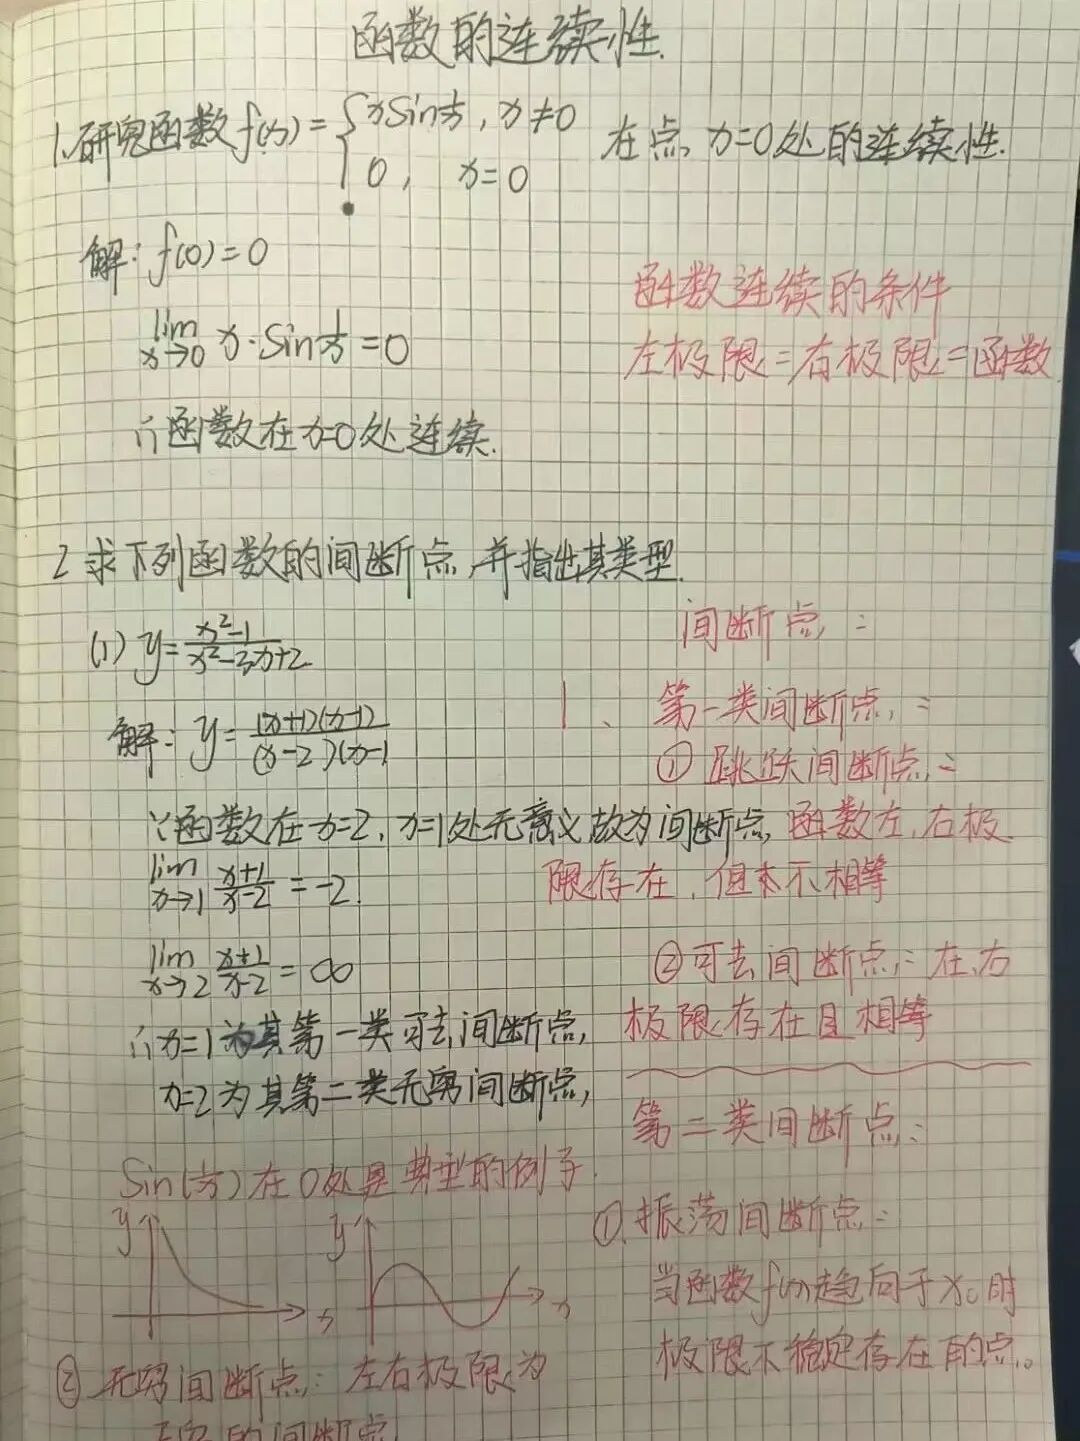 函数的连续性.
1.研究函数f(x)={xsin1/x, x≠0 在点x=0处的连续性.
0, x=0
解: f(0)=0
函数连续的条件
lim x→0 x·Sin1/x=0
左极限=右极限=函数
∴函数在x=0处连续.
2 求下列函数的间断点,并指出其类型.
间断点:
(1) y=x²-1/x²-3x+2
1、第一类间断点:
解: y=(x+1)(x-1)/(x-2)(x-1
①跳跃间断点:
∵函数在x=2, x=1处无意义故为间断点,
函数左,右极
限存在,但不相等
lim x→1 x+1/x-2=-2.
lim x→2 x+1/x-2=∞
②可去间断点:在、右
极限存在且相等
∴x=1为其第一类可去间断点,
x=2为其第二类无穷间断点,
第二类间断点:
Sin(1/x)在0处是典型的例子.
①振荡间断点:
y x y x
当函数f(x)趋向于x₀时
极限不稳定存在的点。
②无穷间断点:左右极限为
无穷的间断点